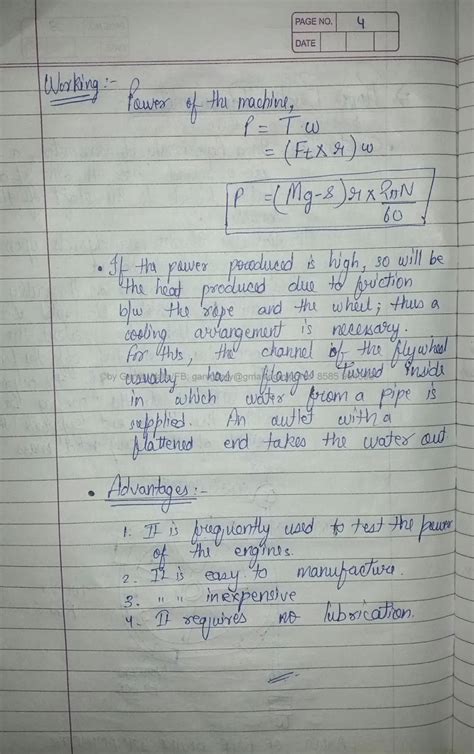 PAGE NO. 4
DATE
Working :-
Power of the machine,
P = T ω
= (Ft × r) ω
P = (Mg-s) r × 2πN/60
• If the power produced is high, so will be
the heat produced due to friction
b/w the rope and the wheel; thus a
cooling arrangement is necessary.
For this, the channel of the flywheel
usually has flanges turned inside
in which water from a pipe is
supplied. An outlet with a
flattened end takes the water out
• Advantages :-
1. It is frequantly used to test the power
of the engines.
2. It is easy to manufacture.
3. " " inexpensive
4. It requires no lubrication.